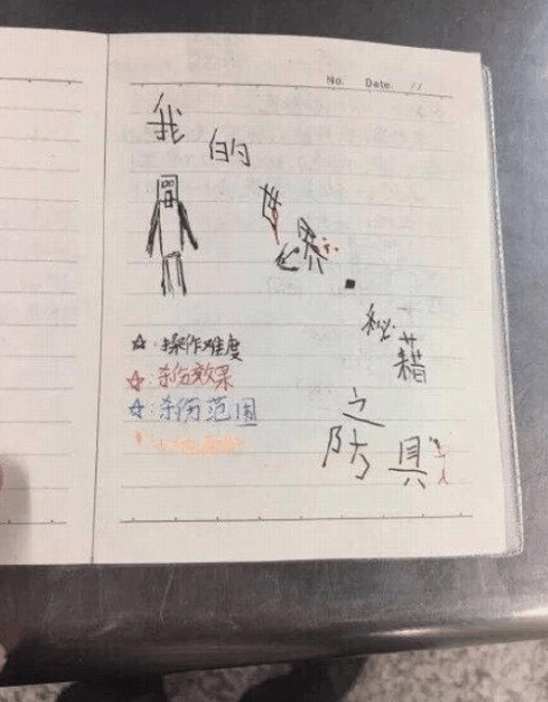 No. Date. / /
我的世界·秘籍之防具
☆:操作难度
☆:杀伤效果
☆:杀伤范围